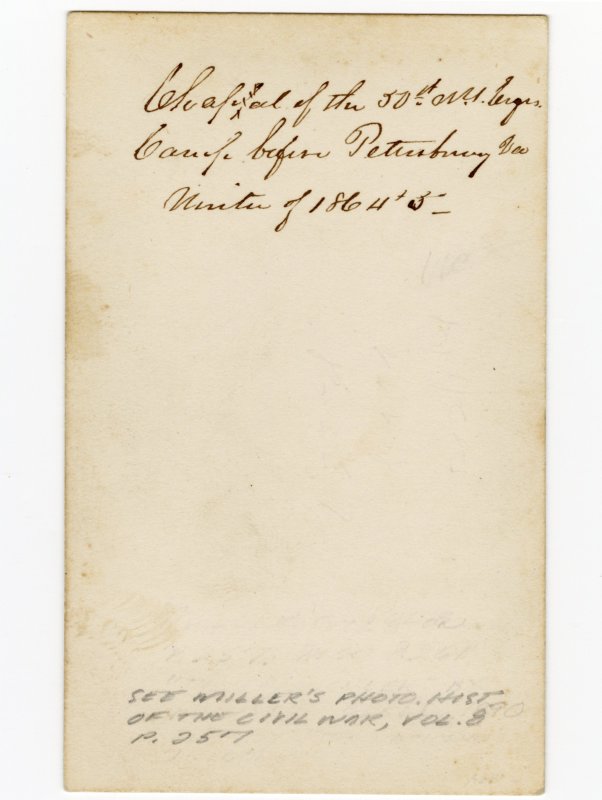 Chapel of the 50th N.Y. Engrs.
Camp before Petersburg Va
Winter of 1864 & 5 –
SEE MILLER'S PHOTO. HIST
OF THE CIVIL WAR, VOL. 8
P. 257